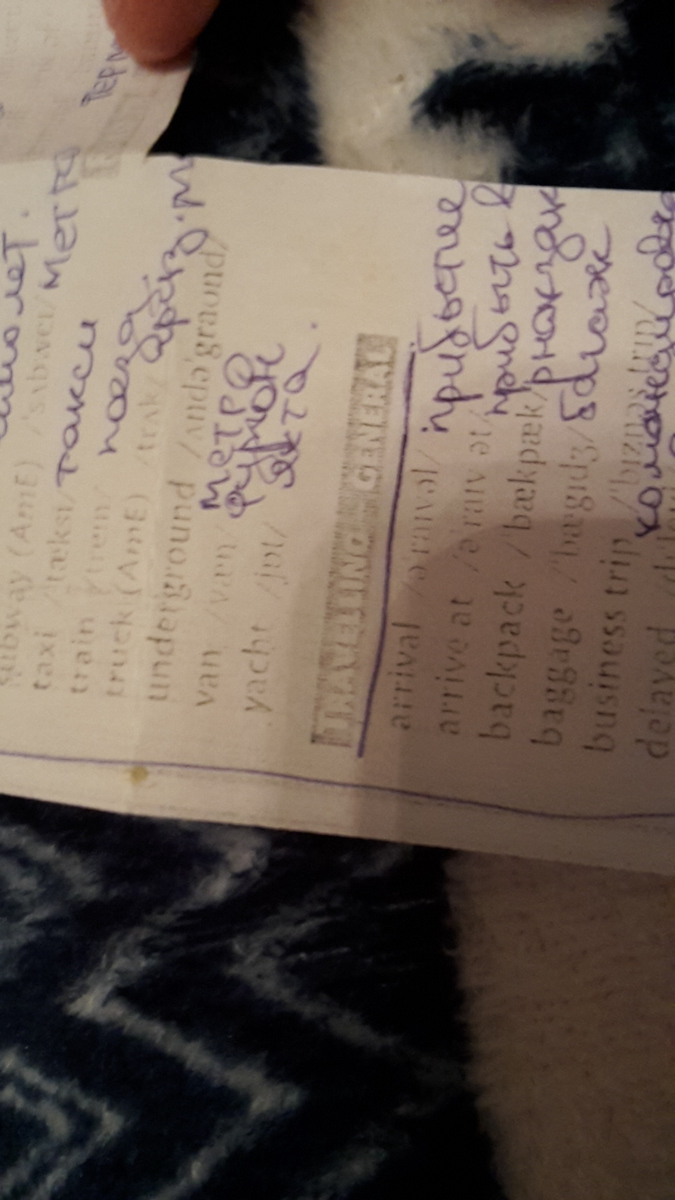 самолет.
subway (AmE) /ˈsʌbweɪ/ метро
taxi /ˈtæksi/ такси
train /treɪn/ поезд
truck (AmE) /trʌk/
underground /ˈʌndəˈgraʊnd/ метро
van /væn/ фургон
yacht /jɒt/ яхта.
TRAVELLING GENERAL
arrival /əˈraɪvəl/ прибытие
arrive at /əˈraɪv ət/ прибыть в
backpack /ˈbækpæk/ рюкзак
baggage /ˈbægɪdʒ/ багаж
business trip /ˈbɪznəs trɪp/
delayed